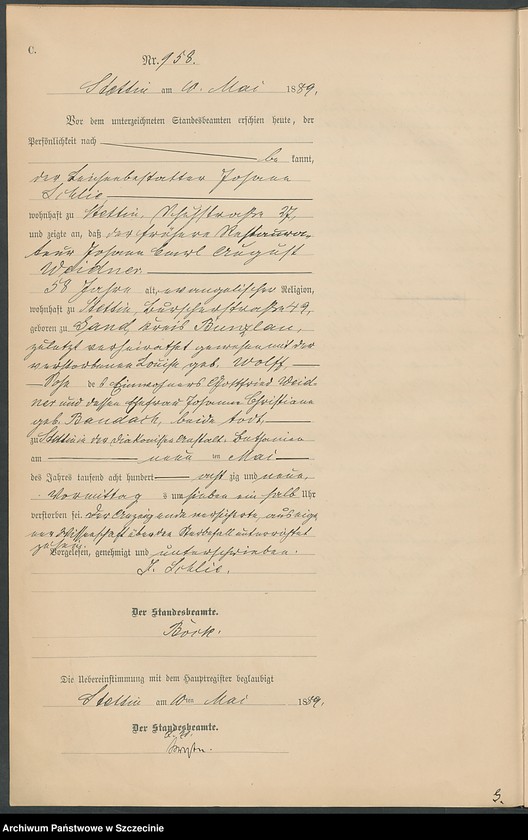 C.
Nr. 958.
Stettin am 10. Mai 1889.
Vor dem unterzeichneten Standesbeamten erschien heute, der
Persönlichkeit nach
be kannt,
der Leichenbestatter Johann
Schlie
wohnhaft zu Stettin, Schulzstraße 27,
und zeigte an, daß der frühere Restaura-
teur Johann Carl August
Weidner
58 Jahre alt, evangelischer Religion,
wohnhaft zu Stettin, 49,
geboren zu Kreis Bunzlau,
zuletzt verheirathet gewesen mit der
verstorbenen Louise geb. Wolff,
Sohn des Einwohners Gottfried Weid-
ner und dessen Ehefrau Johanne Christiane
geb. beide todt,
zu Stettin in der Diakonissen Anstalt Bethanien
am neun ten Mai
des Jahres tausend acht hundert acht zig und neun,
Vormittag s um sieben ein halb Uhr
verstorben sei. Der Anzeigende versicherte, aus eige-
ner Wissenschaft über den Sterbefall unterrichtet
zu sein.
Vorgelesen, genehmigt und unterschrieben.
J. Schlie.
Der Standesbeamte.
Böck.
Die Uebereinstimmung mit dem Hauptregister beglaubigt
Stettin am 10ten Mai 1889.
Der Standesbeamte.
Archiwum Państwowe w Szczecinie